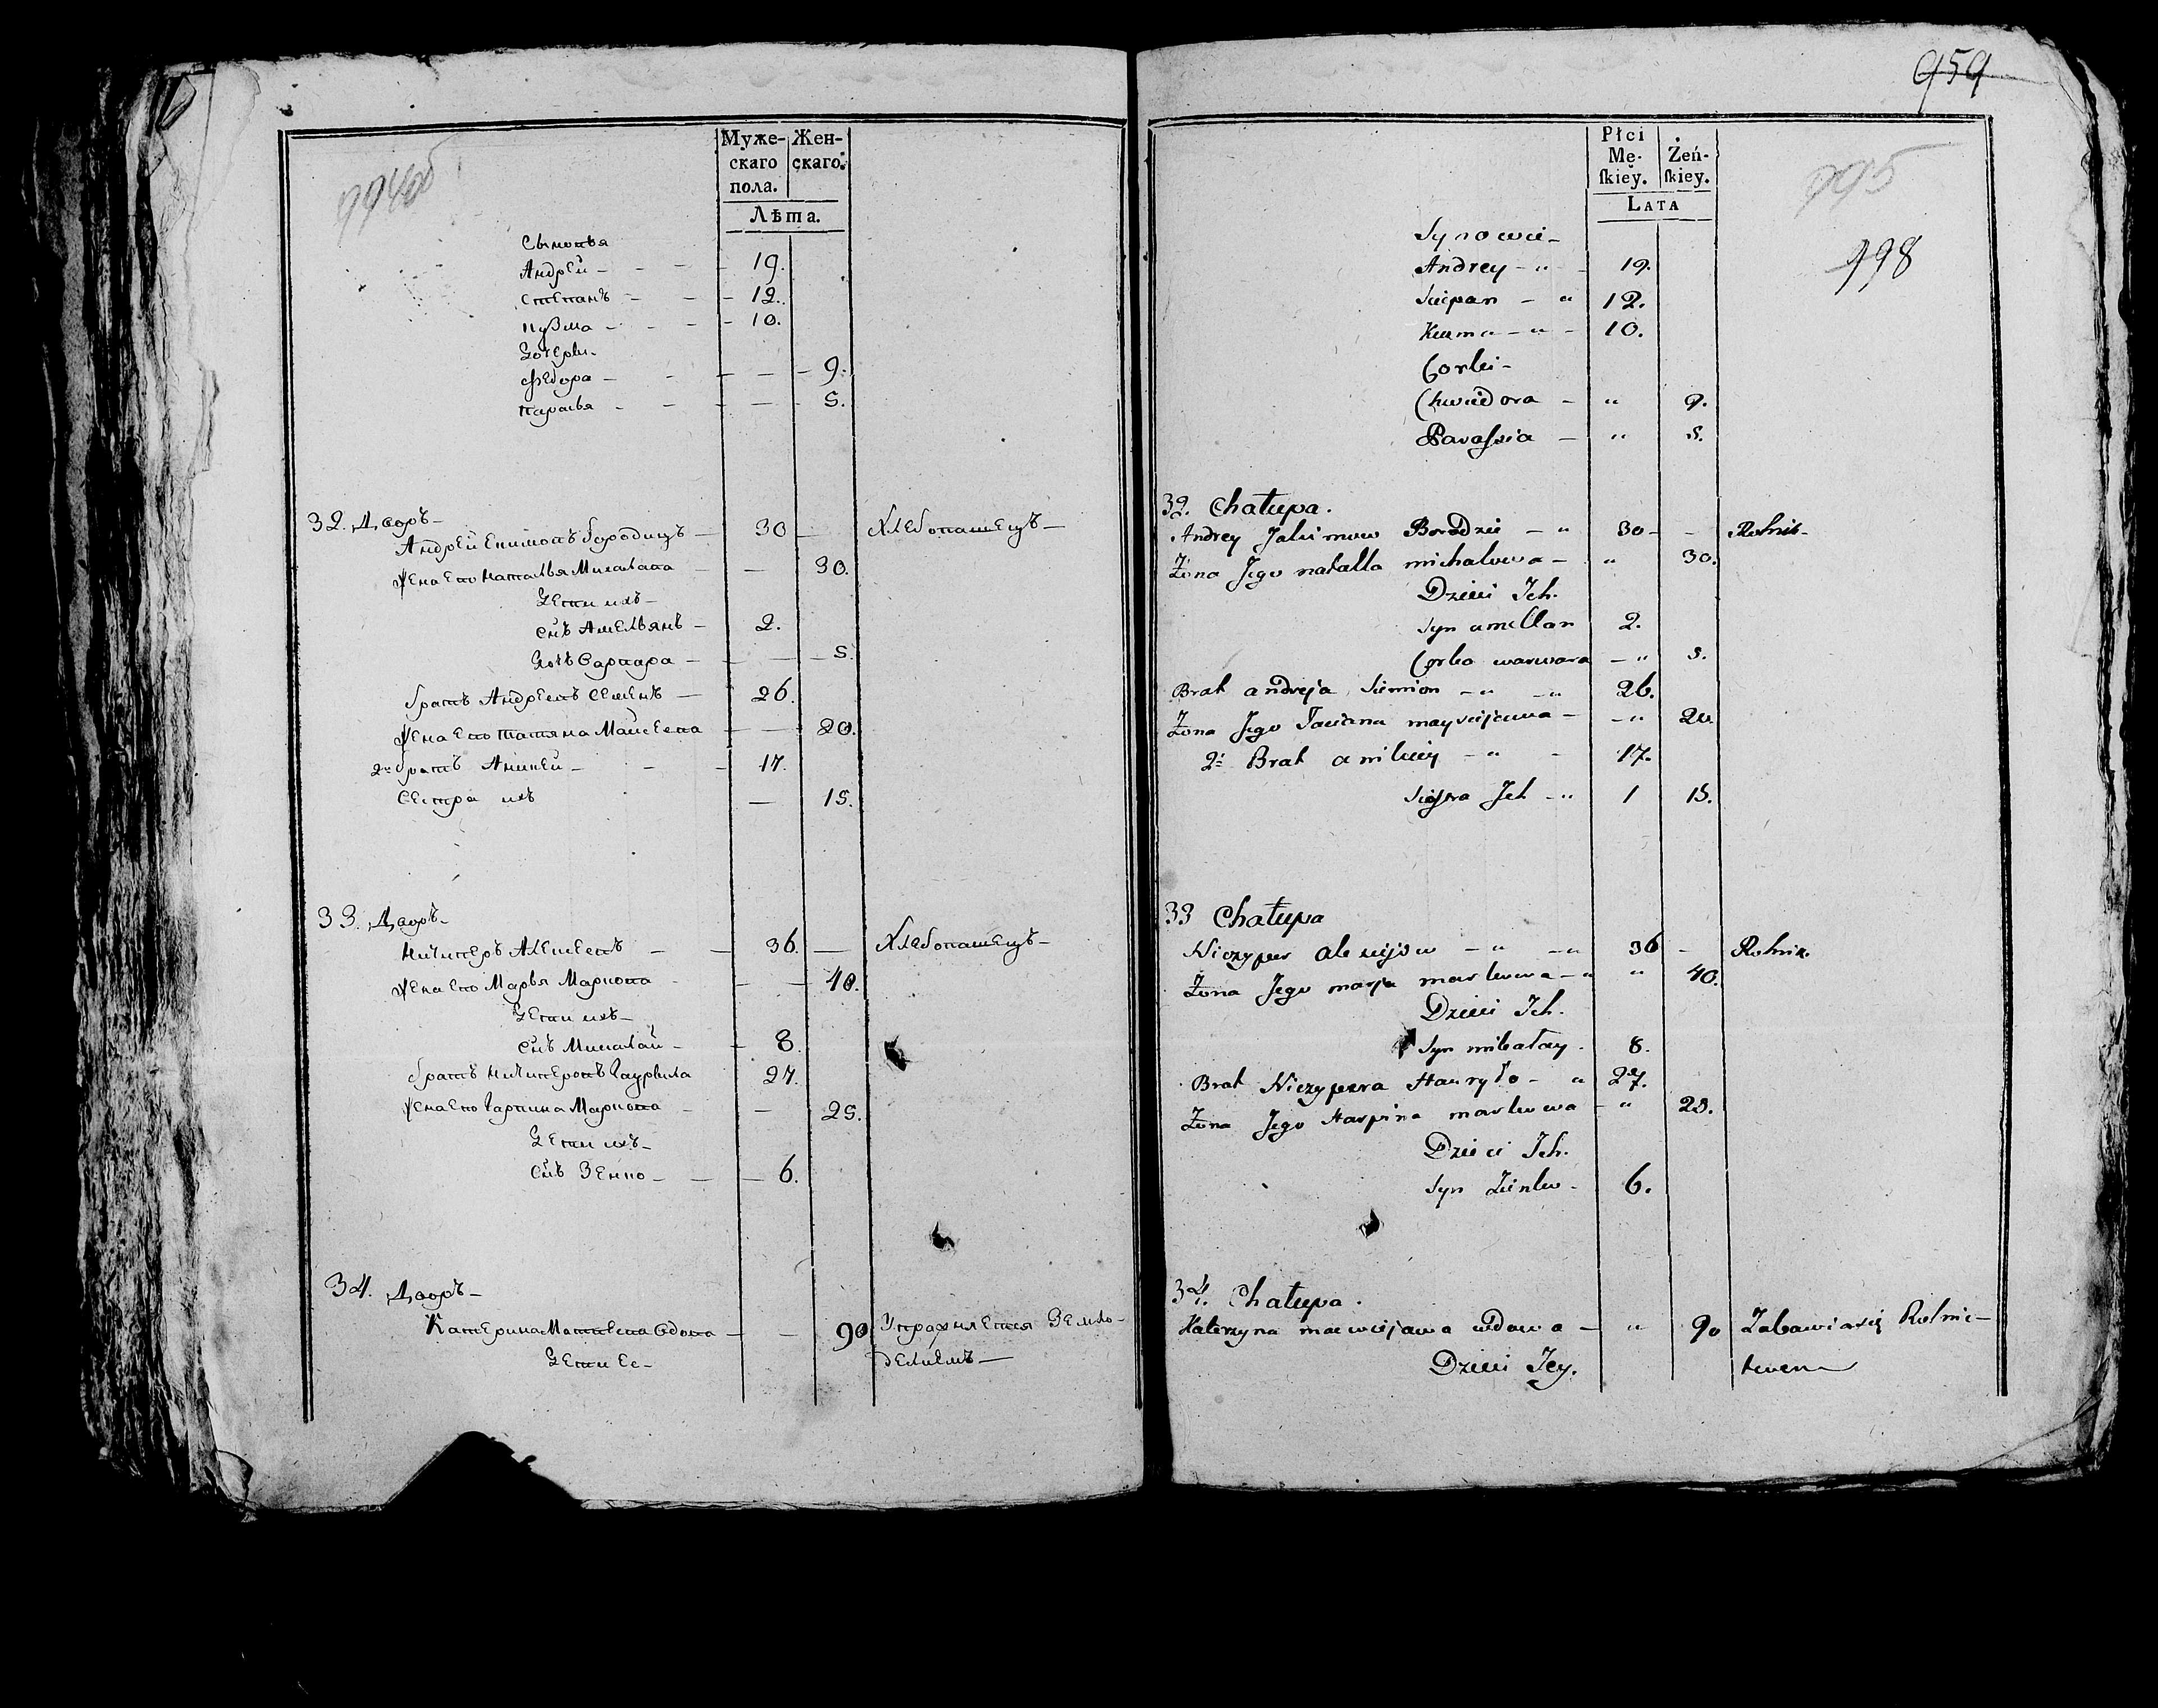 994об
Муже-
скаго
пола.
Жен-
скаго.
Лѣта.
Сыновья
Андрей - - - - 19.
Степанъ - - - 12.
Кузма - - - - 10.
Дочери.
Федора - - - - - 9.
Парасья - - - - - 5.
32. Дворъ -
Андрей Екимовъ Бородичъ - 30 - Хлебопашецъ -
Жена Его Наталья Михалова - - 30.
Дети ихъ -
Сынъ Амельянъ - 2.
Дочь Варвара - - - 5.
Братъ Андреевъ Семенъ - 26.
Жена Его Татяна Майсеева - - 20.
2й братъ Аникей - - - 17.
Сестра ихъ - 15.
33. Дворъ -
Ничиперъ Алексеевъ - - 36. - Хлебопашецъ -
Жена Его Марья Маркова - - - 40.
Дети ихъ -
Сынъ Миколай - - 8.
Братъ Ничиперовъ Гаурыла 27.
Жена Его Гарпина Маркова - - 25.
Дети ихъ -
Сынъ Зенко - - - 6.
34. Дворъ -
Катерина Матвеева Вдова - - 90 Упражняется Земло-
Дети Ее - делиемъ -
959
Płci
Mę-
skiey.
Żeń-
skiey.
LATA
995
998
Synowie -
Andrey - " - 19.
Sciepan - " 12.
Kuzma - " - 10.
Corki -
Chwiedora - " 9.
Parassia - " 5.
32. Chałupa.
Andrey Jakimow Borodzicz - " 30 - - Rolnik -
Żona Jego natalla michałowa - " 30.
Dzieci Ich.
Syn amellan 2.
Corka warwara - " 5.
Brat andreja Siemion - " - " 26.
Żona Jego Taciana mayseijewa - - " 20.
2i Brat anikiey - " - 17.
Siostra Ich - " 1 15.
33 Chałupa
Niczyper alexiejow - " - " 36 - Rolnik.
Żona Jego marja markowa - " " 40.
Dzieci Ich.
Syn mikołay - 8.
Brat Niczypera Hauryło - " 27.
Żona Jego Harpina markowa - " 25.
Dzieci Ich.
Syn Zienko - 6.
34. Chałupa.
Katerzyna macwiejawa wdowa - " 90 Zabawia się Rolnic-
Dzieci Jey. twem